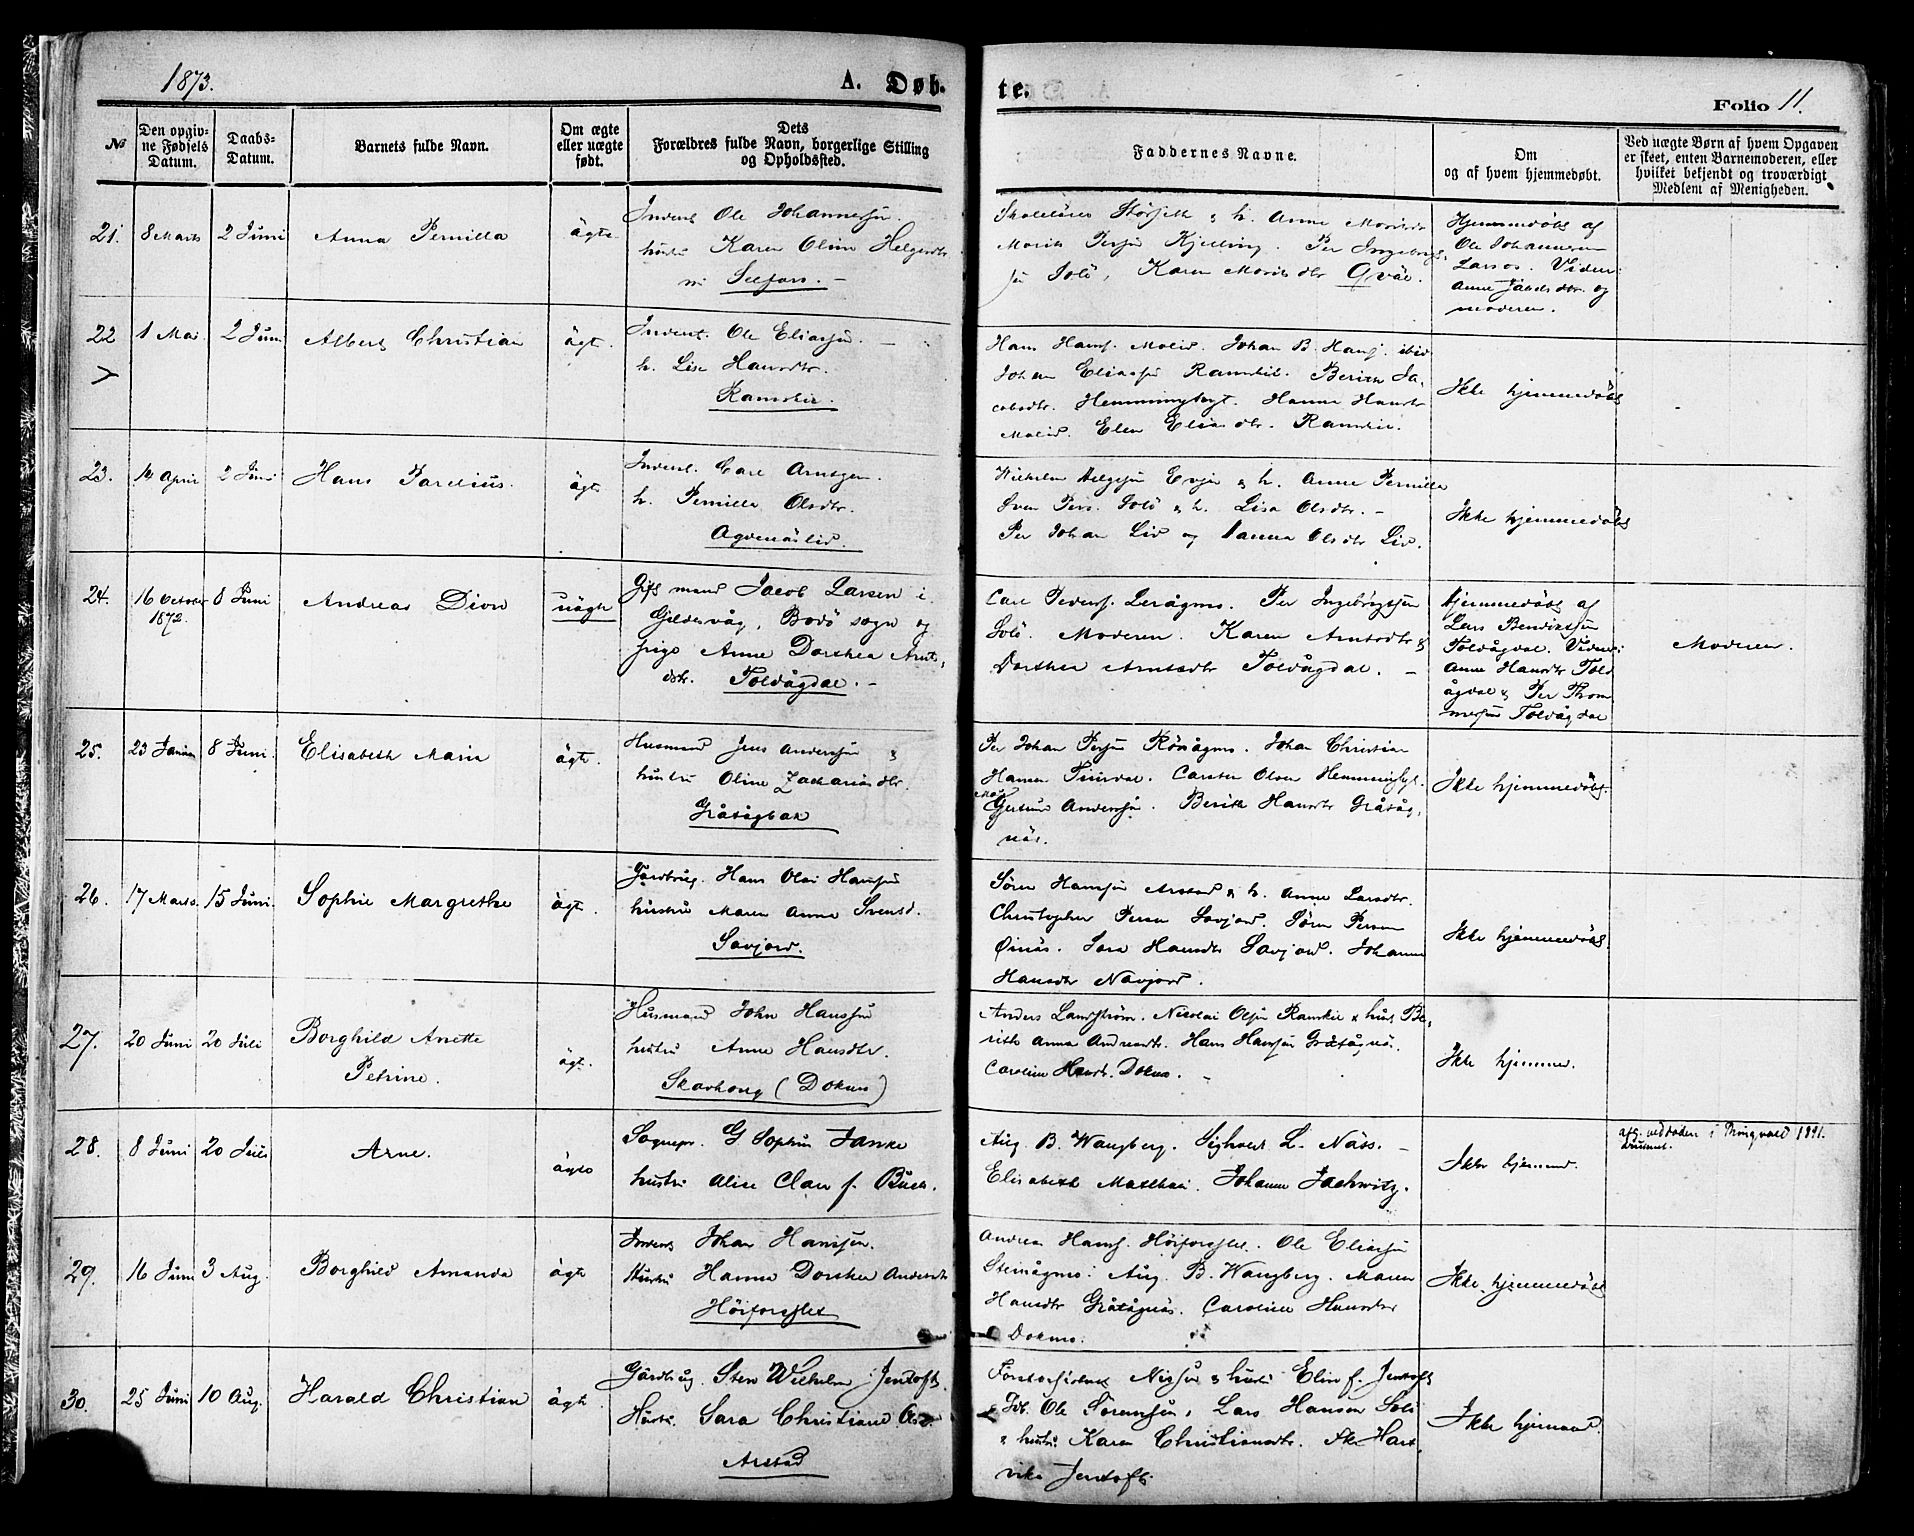 1873.
A. Døb-
te.
Folio 11.
№
Den opgiv-
ne Fødsels
Datum.
Daabs-
Datum.
Barnets fulde Navn.
Om ægte
eller uægte
født.
Dets
Forældres fulde Navn, borgerlige Stilling
og Opholdssted.
Faddernes Navne.
Om
og af hvem hjemmedøbt.
Ved uægte Børn af hvem Opgaven
er skeet, enten Barnemoderen, eller
hvilket bekjendt og troværdigt
Medlem af Menigheden.
21. 8 Marts 2 Juni Anna Pernilla ägte
Inderst Ole Johannessen.
hustru Karen Oline Helgesdtr
Setfors. —
& h. Anne
Morits Persen Kjelling. Per Ingebrigt-
sen Solö, Karen Moritsdtr Qväl.
Hjemmedöbt af
Ole Johannesen
Larsos. Vidner:
Anne Jakobsdtr. og
moderen.
22 1 Mai 2 Juni Albert Christian ägte.
Inderst. Ole Eliassen. —
h. Lise Hansdtr.
Ramskir.
Hans Hans. Molid. Johan B. Hans. ibid
Johan Eliassen Ramskir. Berith Ja-
cobsdtr. Hemmingbygt. Hanna Hansdtr
Molid. Elen Eliasdtr. Ramskir.
Ikke hjemmedöbt
23. 14 April 2 Juni Hans Parelius. ägte
Inderst. Carl Arntzen.
h. Pernilla Olsdtr.
Agdenäslid.
Wilhelm Helgesen Evjen & h. Anne Pernilla
Sven Pers. Solö & h. Lisa Olsdtr. —
Per Johan Lid og Hanna Olsdtr Lid.
Ikke hjemmedöbt
24. 16 October 8 Juni Andreas Dion uägte
1872.
Gift mand Jacob Larsen i
Gildesvåg, Bodö sogn og
pige Anne Dorthea Arnt-
sdtr. Tolvågdal. —
Carl Peders. Leiågmo. Per Ingebrigtsen
Solö. Moderen. Karen Arntsdtr &
Dorthea Arntsdtr Tolvågdal. —
Hjemmedöbt af
Lars Bendiktsen
Tolvågdal. Vidner:
Anne Hansdtr Tolv
ågdal & Per Thom
mesen Tolvågdal
Moderen.
25. 23 Januar 8 Juni. Elisabeth Maria ägte.
Husmand Jens Andersen &
hustru Oline Zachariasdtr.
Gråtågbak
Per Johan Persen Rösågmo. Johan Christian
Hansen Tinirdal. Carsten Olsen Hemmingbygt.
Gjertrud Andersen. Berith Hansdtr Gråtåg-
näs.
Ikke hjemmedöbt.
26. 17 Marts. 15 Juni Sophie Margrethe ägte.
Gårdbrug. Hans Olai Hansen
hustru Maren Anna Svensd.
Savjord.
Sören Hansen Arstad & h. Anne Larsdtr.
Christopher Persen Savjord. Sören Persen
Öinäs. Sara Hansdtr Savjord. Johanna
Hansdtr Navjord.
Ikke hjemmedöbt
27. 20 Juni 20 Juli Borghild Anette
Petrine. ägt.
Husmand John Hanssen
hustru Anne Hansdtr.
Skavhaug (Dokmo)
Anders Landström. Nicolai Olsen Ramskir & hust. Be-
rith Anna Andreasdtr. Hans Hansen Gråtågnäs.
Caroline Hansdtr. Dokmo. —
Ikke hjemmed.
28. 8 Juni 20 Juli Arne. ägte
Sognepr. G Sophus Janke
hustru Alise Clare f. Buck.
Aug. B. Wangberg. Sigholdt L. Näss. —
Elisabeth Matthai. Johanne Jachwitz.
Ikke hjemmed.
i Tringvold 1891.
29. 16 Juni 3 Aug. Borghild Amanda ägte
Inderst Johan Hanssen.
Hustru Hanna Dorthea Andersdtr
Höiforsflet
Andreas Hans. Höiforsflet. Ole Eliassen
Steinågmo. Aug. B. Wangberg. Maren
Hansdtr Gråtågnäs. Caroline Hansdtr
Dokmo.
Ikke hjemmedöbt
30. 25 Juni 10 Aug. Harald Christian ägte.
Gårdbrug. Sten Wilhelm Jentoft.
Hustru. Sara Christiane
Arstad
Nissen & hustru Elin f. Jentoft
Ole Sörensen, Lars Hansen Solö
& hustru Karen Christiansdtr. Hart-
vika Jentoft.
Ikke hjemmed.